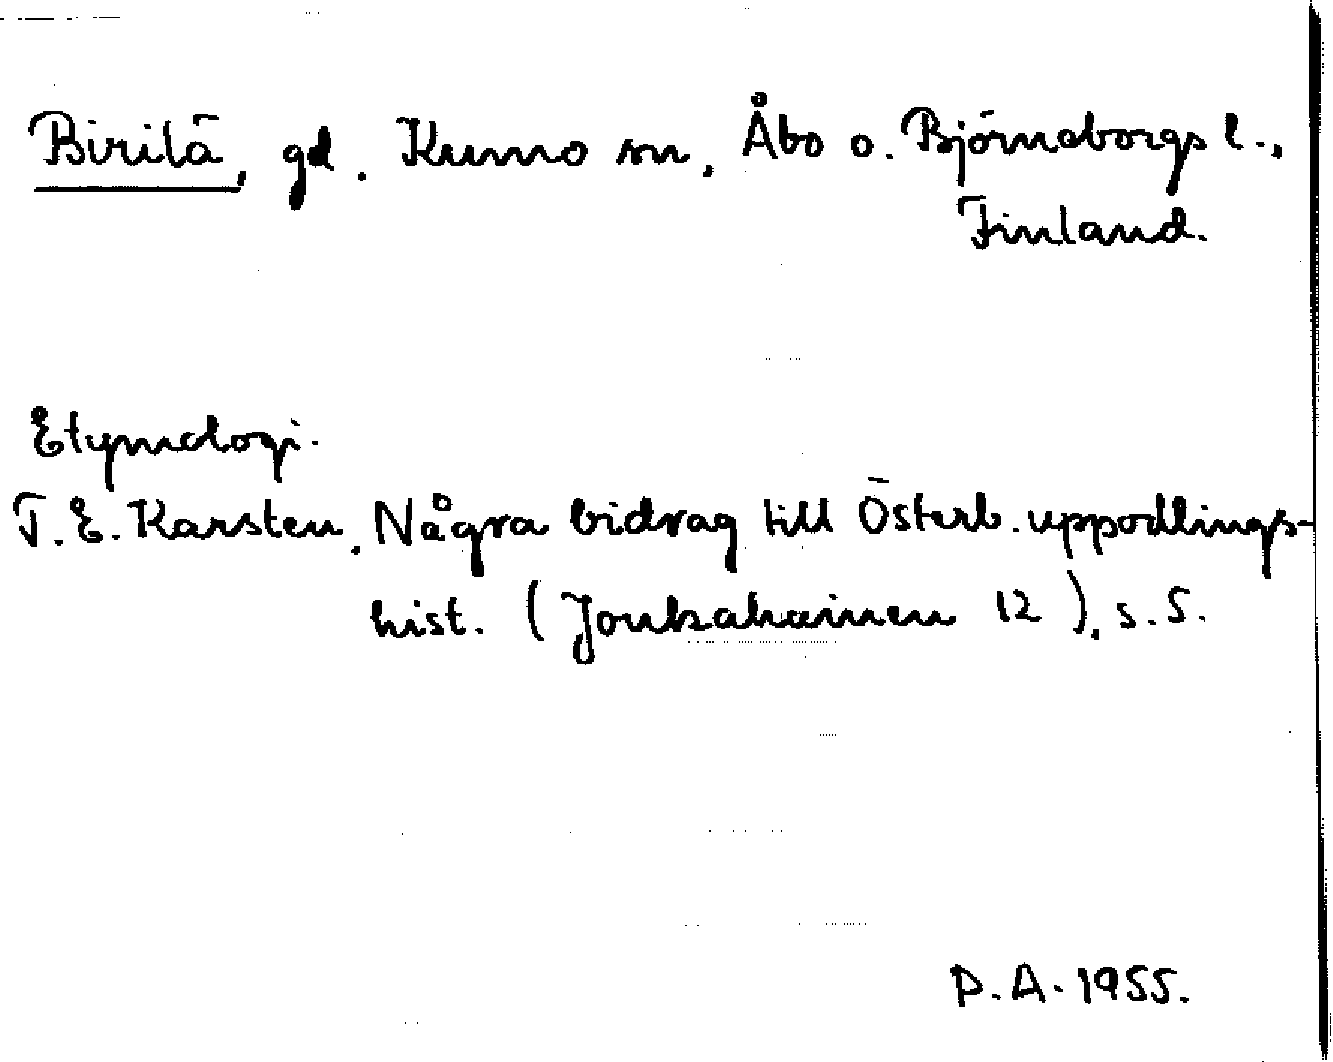 Birilä, gd. Kumo sn, Åbo o. Björneborgs l.,
Finland.
Etymologi.
T. E. Karsten, Några bidrag till Österb. uppodlings-
hist. (Joukahainen 12), s. 5.
P. A. 1955.